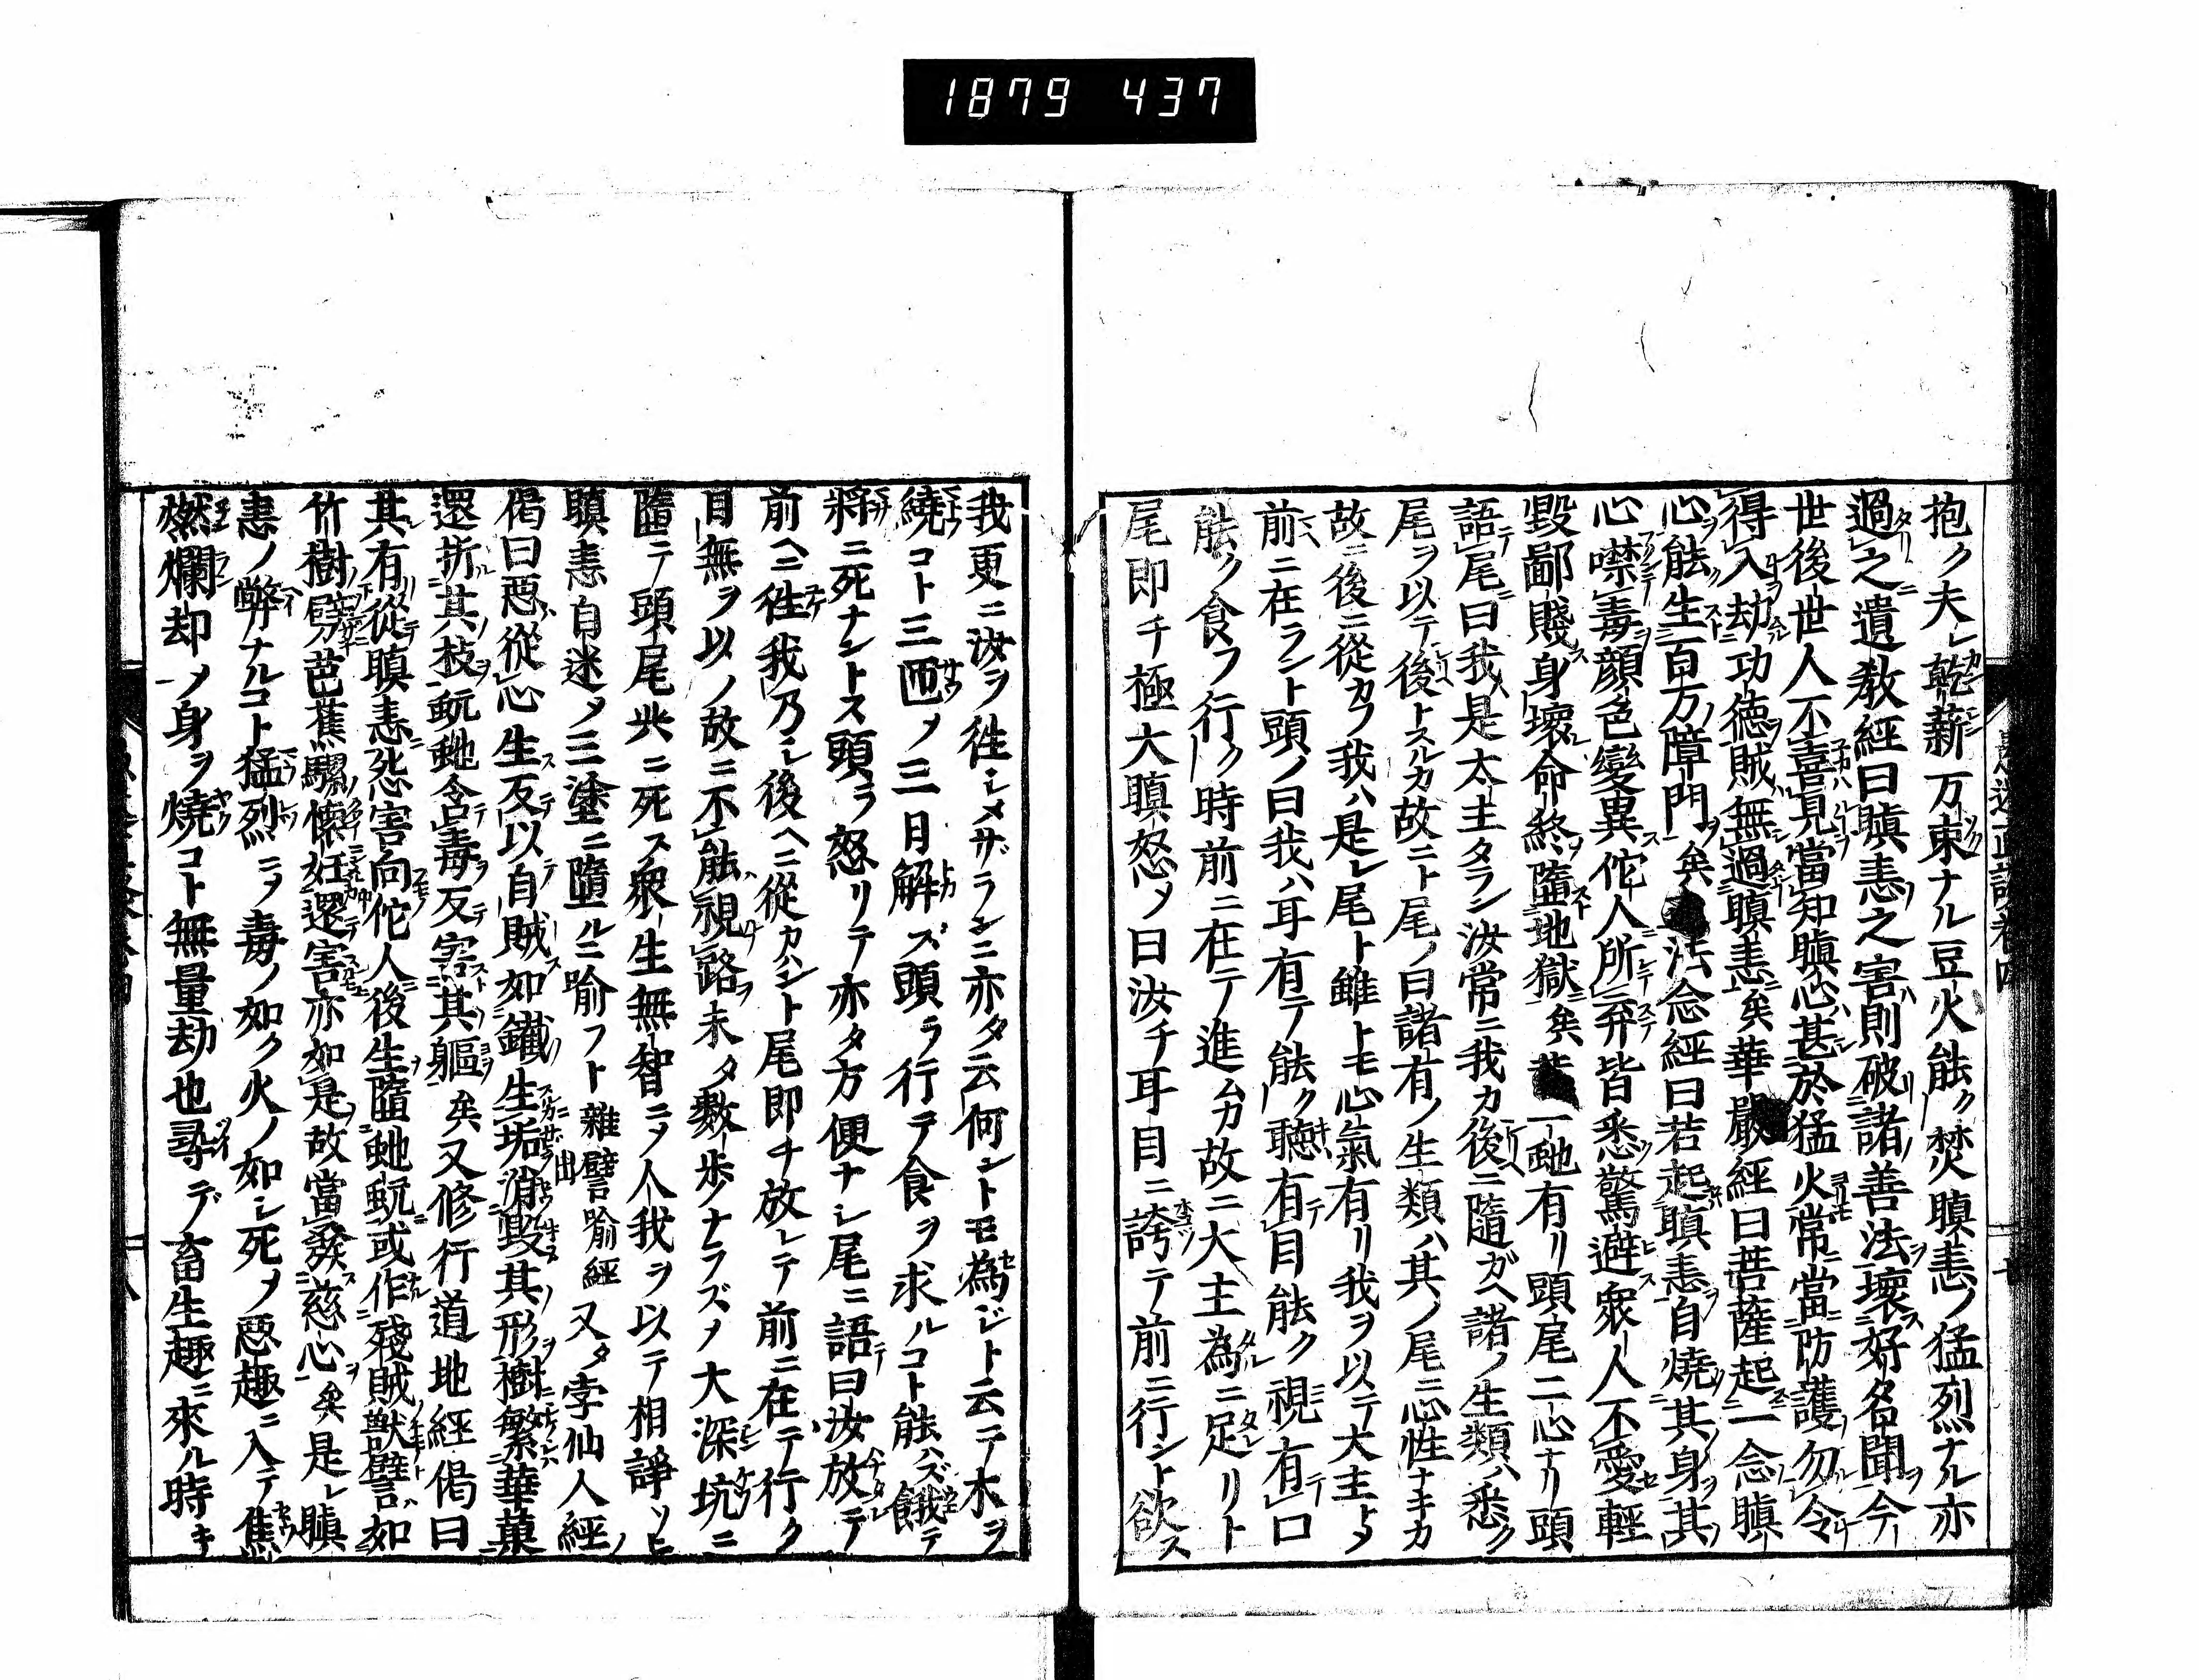 1879 437
抱ク夫レ乾薪万束ナル豆火能ク焚瞋恚ノ猛烈ナル亦
過之遺教經曰瞋恚之害則破諸善法壞好名聞今
世後世人不喜見當知瞋心甚於猛火常當防護勿令
得入劫功徳賊無過瞋恚矣華嚴經曰菩薩起一念瞋
心能生百万障門矣 法念經曰若起瞋恚自燒其身其
心噤毒顔色變異佗人所弃皆悉驚避衆人不愛輕
毀鄙賤身壞命終墮地獄矣 一虵有リ頭尾二心ナリ頭
語尾曰我是太主タラン汝常ニ我カ後ニ隨ガヘ諸ノ生類ハ悉ク
尾ヲ以テ後トスルカ故ニト尾ノ曰諸有ノ生類ハ其ノ尾ニ心性ナキカ
故ニ後ニ從カフ我ハ是レ尾ト雖トモ心氣有リ我ヲ以テ大主トメ
前ニ在ラント頭ノ曰我ハ耳有テ能ク聽有目能ク視有口
能ク食フ行ク時前ニ在テ進ムカ故ニ大主為ニ足リト
尾即チ極大瞋怒メ曰汝チ耳目ニ誇テ前ニ行ント欲ス
我更ニ汝ヲ徃シメサラシニ亦タ云何ントモ為ジト云テ木ヲ
繞コト三匝メ三日解ズ頭ラ行テ食ヲ求ルコト能ハズ餓テ
將ニ死ナントス頭ラ怒リテ亦タ方便ナシ尾ニ語曰汝放テ
前ヘニ徃我乃シ後ヘニ從カハント尾即チ放レテ前ニ在テ行ク
目無ヲ以ノ故ニ不能視路未タ數歩ナラズメ大深坑ニ
墮テ頭尾共ニ死ス衆生無智ニメ人我ヲ以テ相諍ソヒ
瞋恚自迷メ三塗ニ墮ルニ喻フト雜譬喻經出又タ孛仙人經ノ
偈曰惡從心生反以自賊如鐵生垢消毀其形樹繁華菓
還折其枝蚖虵含毒反害其軀矣又修行道地經偈曰
其有從瞋恚怨害向佗人後生墮虵蚖或作殘賊獸譬如
竹樹劈芭蕉騾懷妊還害亦如是故當發慈心矣是レ瞋
恚ノ弊ナルコト猛烈ニメ毒ノ如ク火ノ如シ死メ惡趣ニ入テ焦
燃爛却メ身ヲ燒コト無量劫也尋デ畜生趣ニ來ル時キ